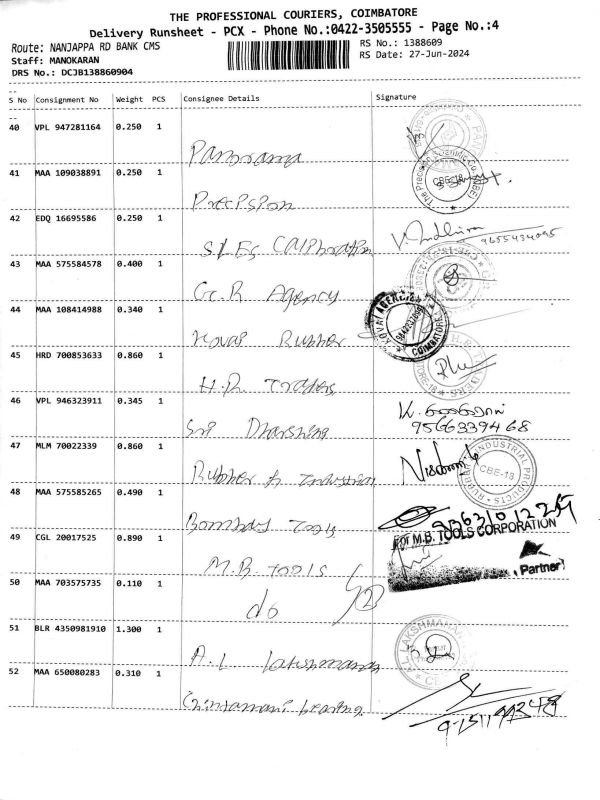 THE PROFESSIONAL COURIERS, COIMBATORE
Delivery Runsheet - PCX - Phone No.:0422-3505555 - Page No.:4
Route: NANJAPPA RD BANK CMS
RS No.: 1388609
Staff: MANOKARAN
RS Date: 27-Jun-2024
DRS No.: DCJB138860904
S No Consignment No Weight PCS Consignee Details Signature
40 VPL 947281164 0.250 1
Panorama
41 MAA 109038891 0.250 1
Precision
The Precision Scientific Co. (CBE)
CBE-18
42 EDQ 16695586 0.250 1
S.L.Es Corporation
9655434095
43 MAA 575584578 0.400 1
G.R Agency
44 MAA 108414988 0.340 1
Kovai Rubber
KOVAI AGENCIES
COIMBATORE
45 HRD 700853633 0.860 1
H.R Traders
46 VPL 946323911 0.345 1
Sri Dharshina
9566339468
47 MLM 70022339 0.860 1
Rubber & Industrial
RUBBER INDUSTRIAL PRODUCTS
CBE-18
48 MAA 575585265 0.490 1
Bombay Tools
49 CGL 20017525 0.890 1
M.B. Tools
For M.B. TOOLS CORPORATION
Partner
50 MAA 703575735 0.110 1
do
2
51 BLR 4350981910 1.300 1
A.L Lakshmanan
52 MAA 650080283 0.310 1
Chintamani bearing